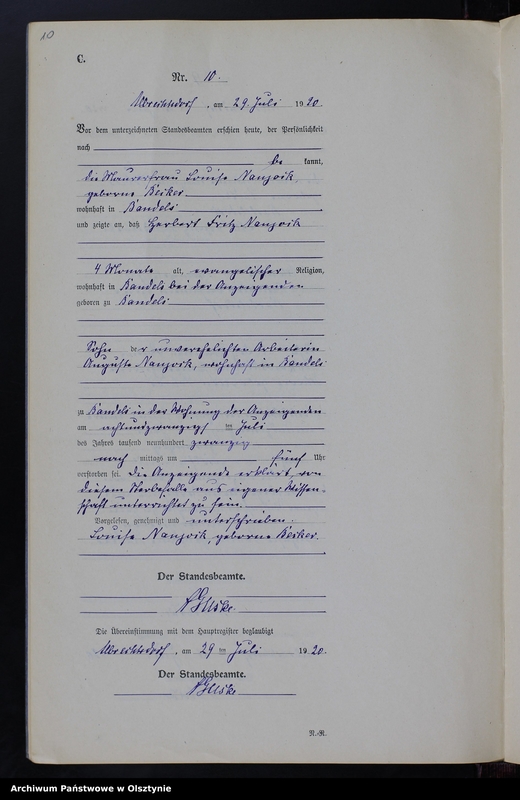 10
C.
Nr. 10.
Albrechtsdorf, am 29. Juli 1920.
Vor dem unterzeichneten Standesbeamten erschien heute, der Persönlichkeit
nach
be kannt,
die Maurerfrau Louise
geborne Becker
wohnhaft in Bandels
und zeigte an, daß Herbert Fritz
4 Monate alt, evangelischer Religion,
wohnhaft in Bandels bei der Anzeigenden
geboren zu Bandels
Sohn der unverehelichten Arbeiterin
Auguste wohnhaft in Bandels
zu Bandels in der Wohnung der Anzeigenden
am achtundzwanzigsten Juli
des Jahres tausend neunhundert zwanzig
nach mittags um fünf Uhr
verstorben sei. Die Anzeigende erklärt von
diesem Sterbefalle aus eigener Wissen-
schaft unterrichtet zu sein.
Vorgelesen, genehmigt und unterschrieben.
Louise geborne Becker.
Der Standesbeamte.
Die Übereinstimmung mit dem Hauptregister beglaubigt
Albrechtsdorf, am 29 ten Juli 1920.
Der Standesbeamte.
N.-R.
Archiwum Państwowe w Olsztynie